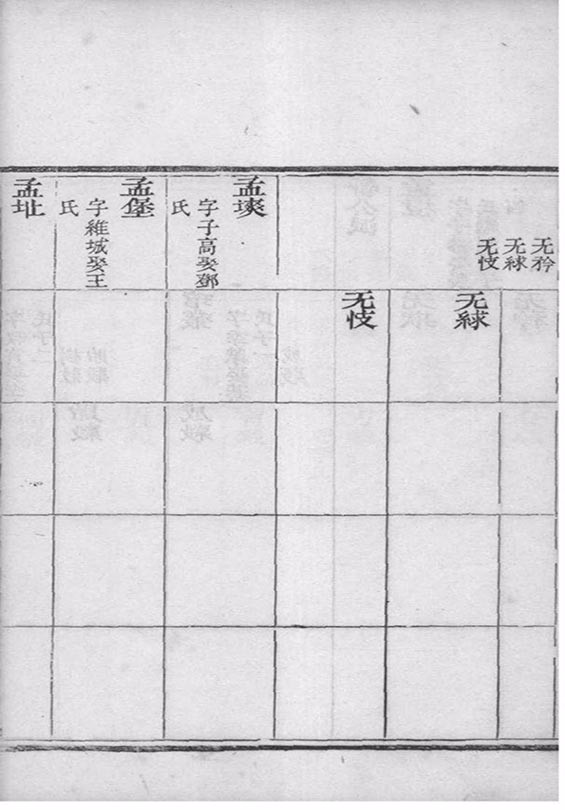 无矜
无絿
无忮
无絿
无忮
孟埮
字子高娶鄧
氏
孟堡
字維城娶王
氏
孟址